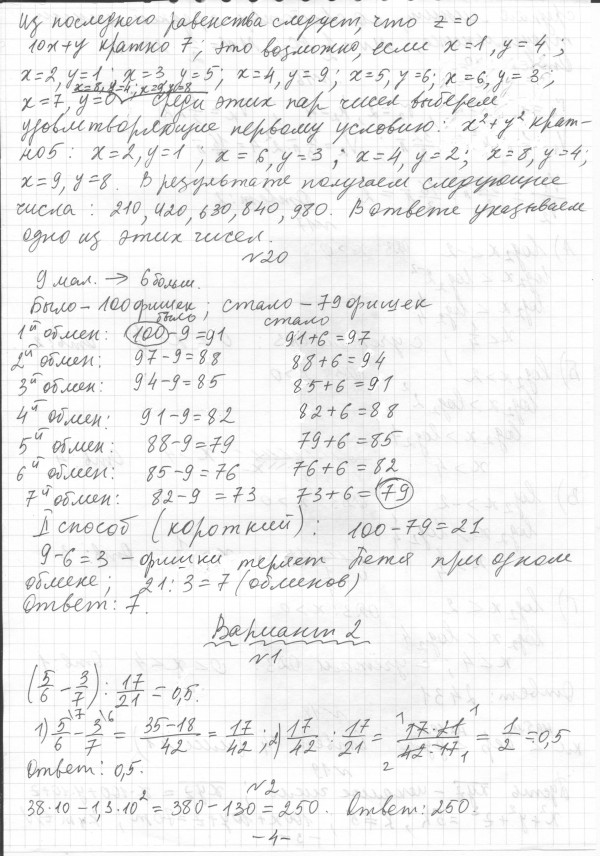 Из последнего равенства следует, что z=0
10x+y кратно 7, это возможно, если x=1, y=4;
x=2, y=1; x=3, y=5; x=4, y=9; x=5, y=6; x=6, y=3;
x=8, y=4; x=9, y=8
x=7, y=0. Среди этих пар чисел выберем
удовлтворяющие первому условию: x²+y² крат-
но 5: x=2, y=1; x=6, y=3; x=4, y=2; x=8, y=4;
x=9, y=8. В результате получаем следующие
числа: 210, 420, 630, 840, 980. В ответе указываем
одно из этих чисел.
№20
9 мал. → 6 больш.
Было – 100 фишек; стало – 79 фишек
было стало
1й обмен: 100-9=91 91+6=97
2й обмен: 97-9=88 88+6=94
3й обмен: 94-9=85 85+6=91
4й обмен: 91-9=82 82+6=88
5й обмен: 88-9=79 79+6=85
6й обмен: 85-9=76 76+6=82
7й обмен: 82-9=73 73+6=79
II способ (короткий): 100-79=21
9-6=3 – фишки теряет Петя при одном
обмене; 21:3=7 (обменов)
Ответ: 7.
Вариант 2
№1
(5/6 - 3/7) : 17/21 = 0,5.
1) 5\7/6 - 3\6/7 = 35-18/42 = 17/42; 2) 17/42 : 17/21 = 17·21/42·17 = 1/2 = 0,5
Ответ: 0,5.
№2
38·10 - 1,3·10² = 380-130=250. Ответ: 250.
-4-